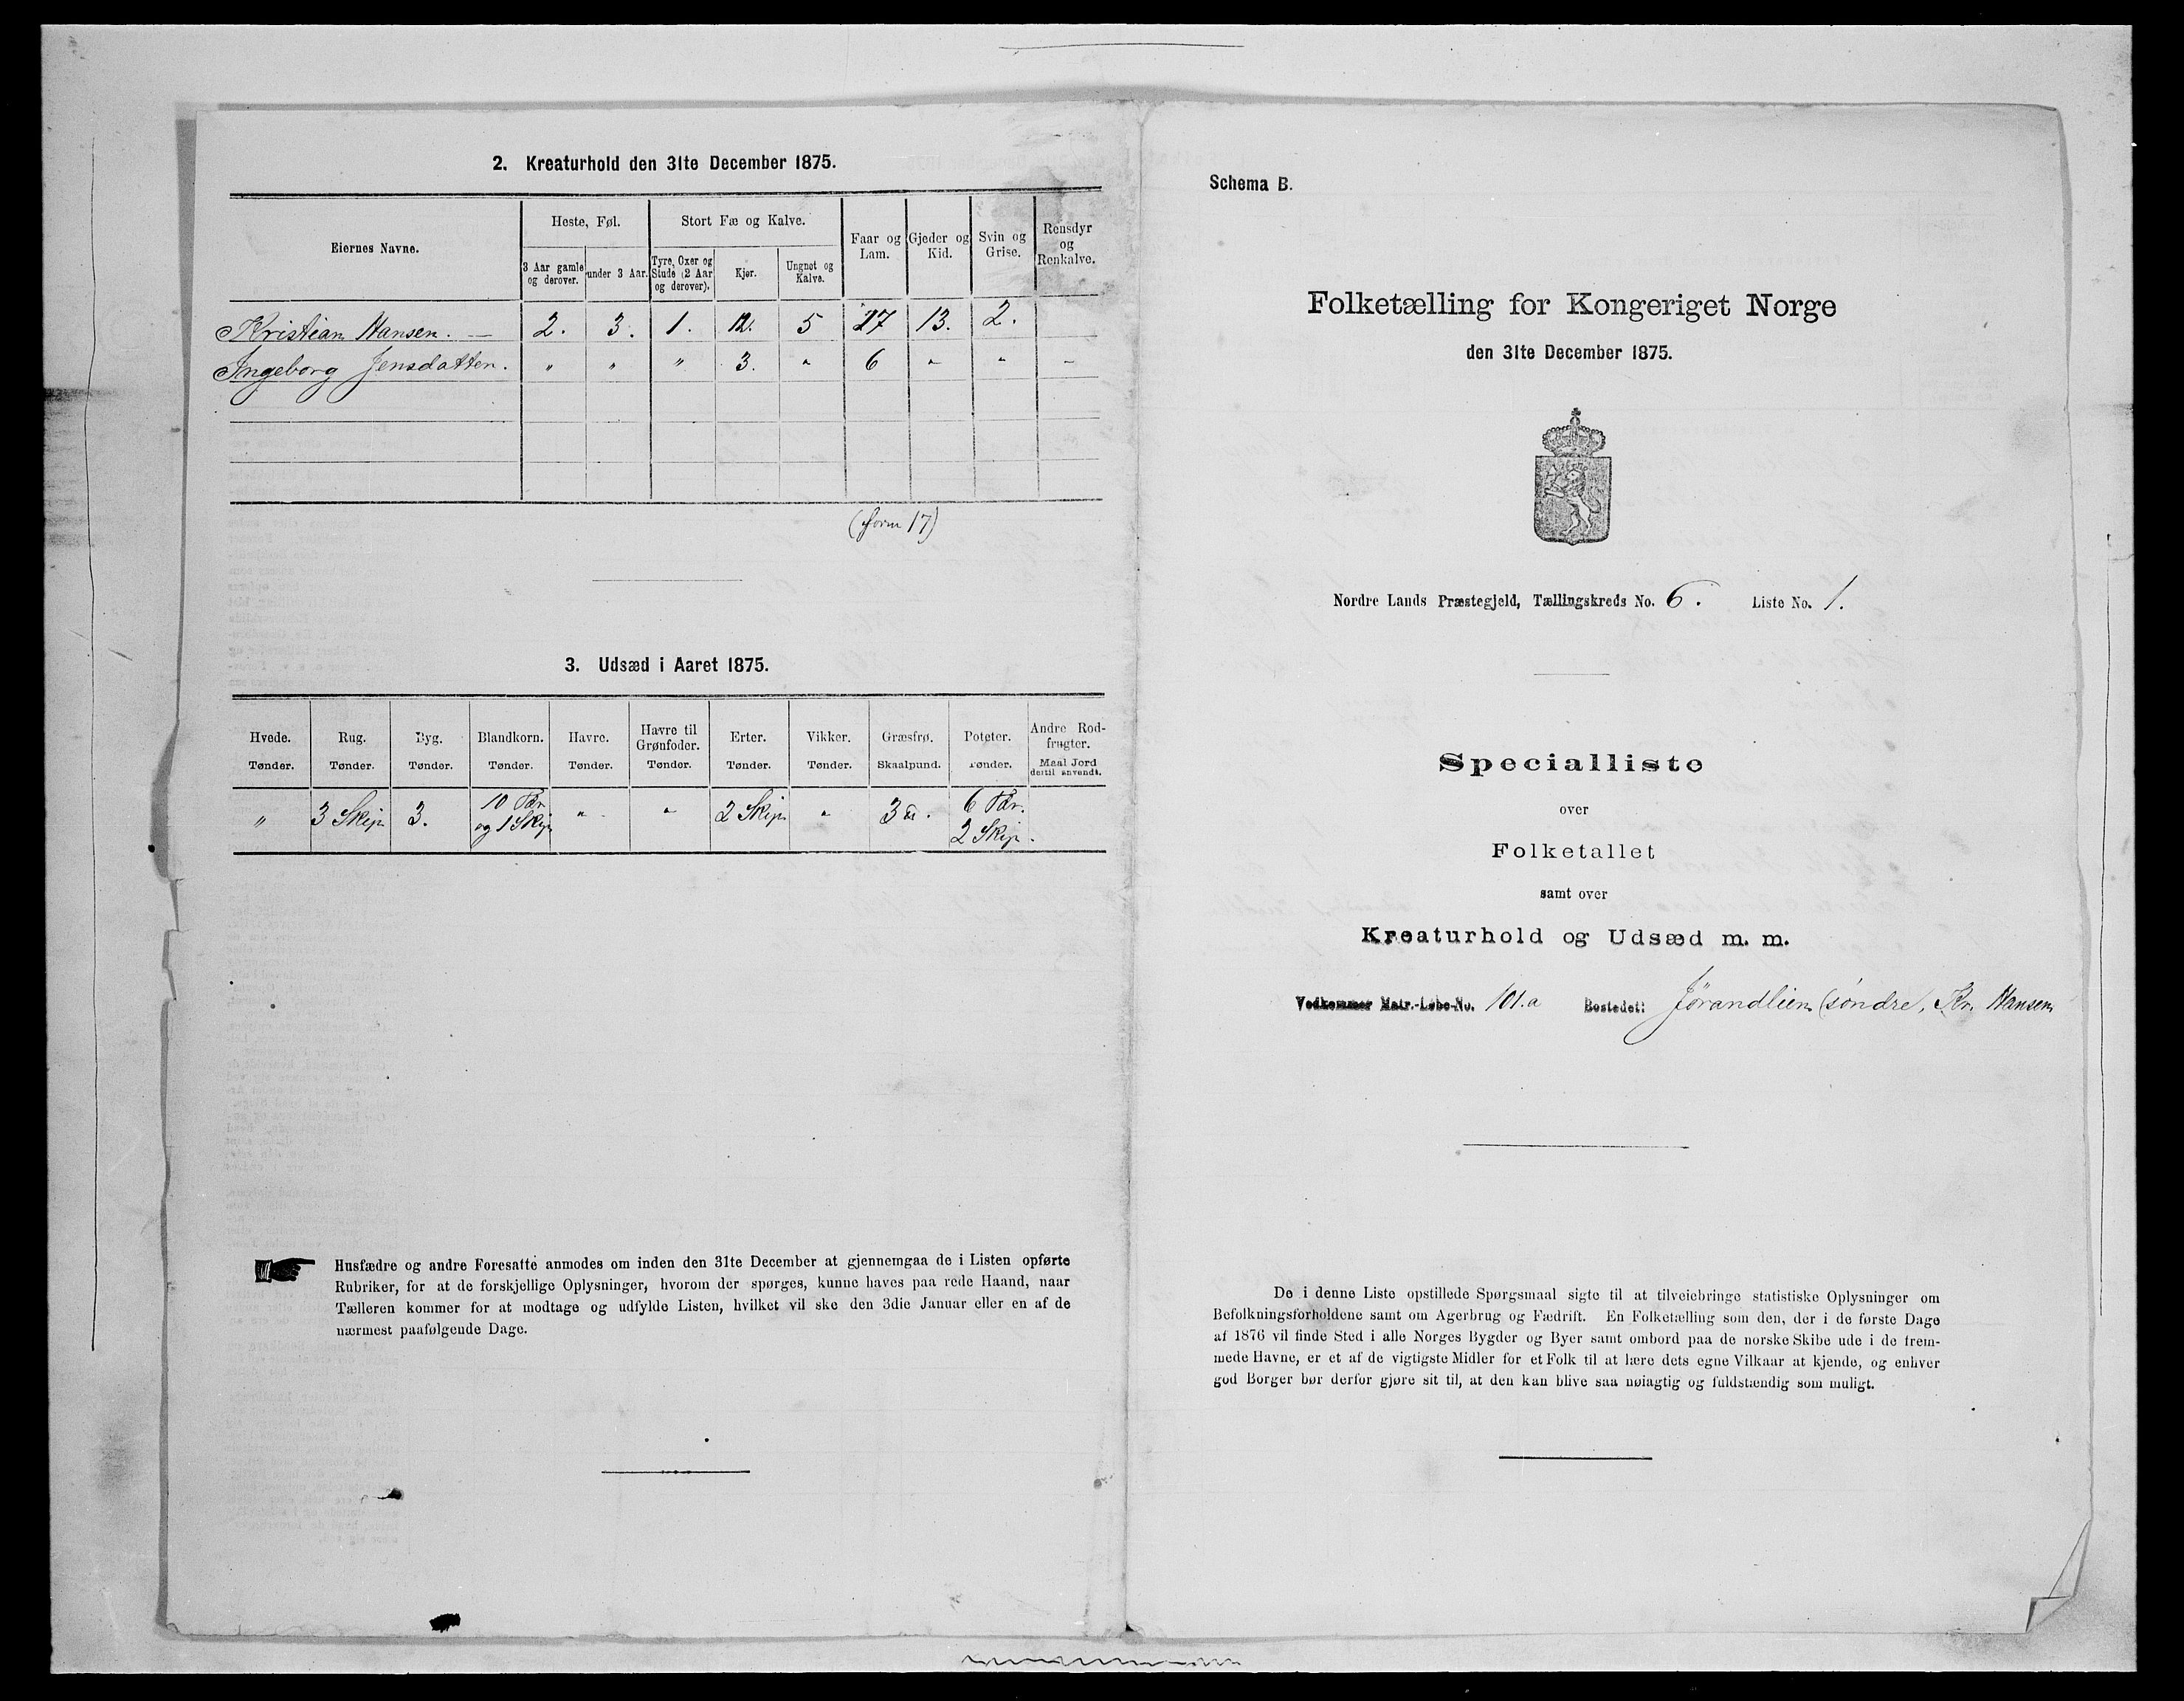 2. Kreaturhold den 31te December 1875.
Eiernes Navne.
Heste, Føl.
Stort Fæ og Kalve.
Faar og Lam.
Gjeder og Kid.
Svin og Grise.
Rensdyr og Renkalve.
3 Aar gamle og derover.
under 3 Aar.
Tyre, Oxer og Stude (2 Aar og derover).
Kjør.
Ungnøt og Kalve.
Kristian Hansen. — 2. 3. 1. 12. 5 27 13. 2.
Ingeborg Jensdatter. " " " 3. " 6 " " –
17)
3. Udsæd i Aaret 1875.
Hvede. Rug. Byg. Blandkorn. Havre. Havre til Grønfoder. Erter. Vikker. Græsfrø. Poteter. Andre Rodfrugter.
Tønder. Tønder. Tønder. Tønder. Tønder. Tønder. Tønder. Tønder. Skaalpund. Tønder. Maal Jord dertil anvendt.
" 3 Skip 3. 10 Tdr. og 1 Skip " " 2 Skip " 3 ℔. 6 Tdr. 2 Skip.
Husfædre og andre Foresatte anmodes om inden den 31te December at gjennemgaa de i Listen opførte
Rubriker, for at de forskjellige Oplysninger, hvorom der spørges, kunne haves paa rede Haand, naar
Tælleren kommer for at modtage og udfylde Listen, hvilket vil ske den 3die Januar eller en af de
nærmest paafølgende Dage.
Schema B.
Folketælling for Kongeriget Norge
den 31te December 1875.
Nordre Lands Præstegjeld, Tællingskreds No. 6. Liste No. 1.
Specialliste
over
Folketallet
samt over
Kreaturhold og Udsæd m. m.
Vedkommer Matr.-Løbe-No. 101.a Bostedet: Jørandlien (søndre, Kr. Hansen
De i denne Liste opstillede Spørgsmaal sigte til at tilveiebringe statistiske Oplysninger om
Befolkningsforholdene samt om Agerbrug og Fædrift. En Folketælling som den, der i de første Dage
af 1876 vil finde Sted i alle Norges Bygder og Byer samt ombord paa de norske Skibe ude i de frem-
mede Havne, er et af de vigtigste Midler for et Folk til at lære dets egne Vilkaar at kjende, og enhver
god Borger bør derfor gjøre sit til, at den kan blive saa nøiagtig og fuldstændig som muligt.